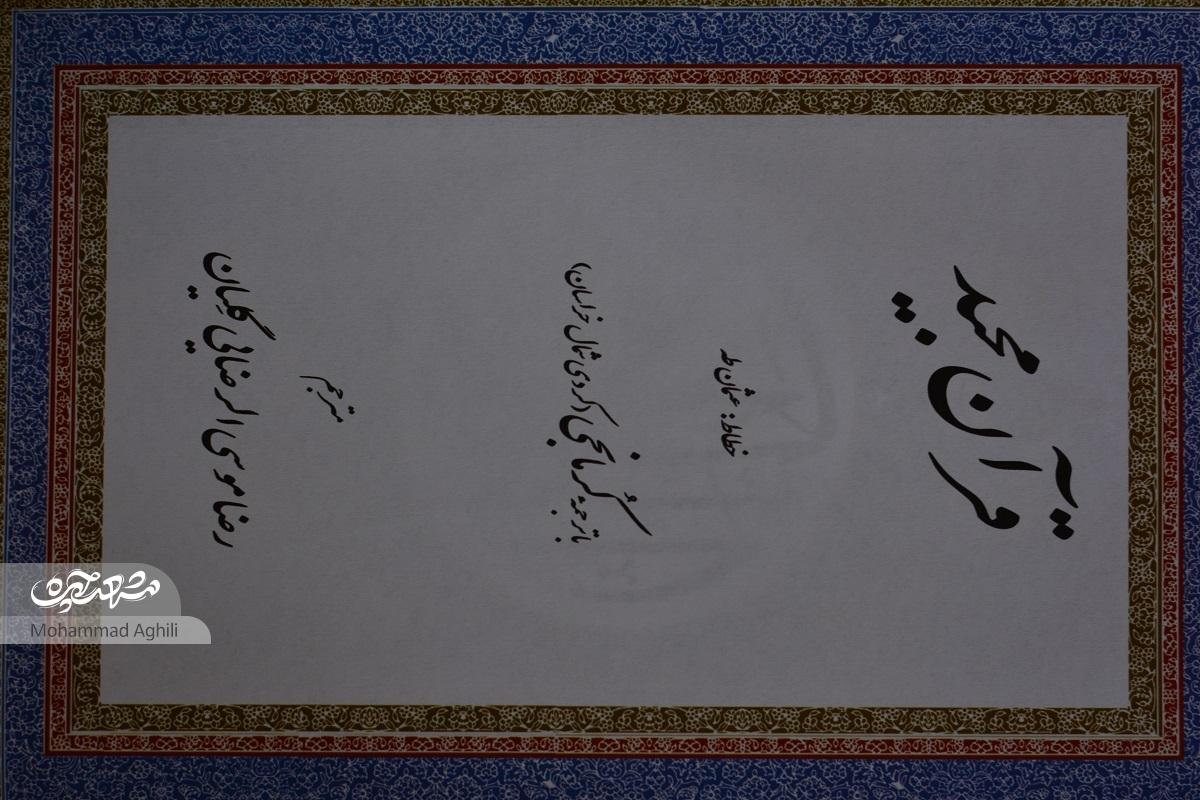 قرآن مجید
خطاط: عثمان طه
با ترجمه کُرمانجی (کردی شمال خراسان)
مترجم
رضا موسی الرضائی گلیان
شهرآرا
Mohammad Aghili